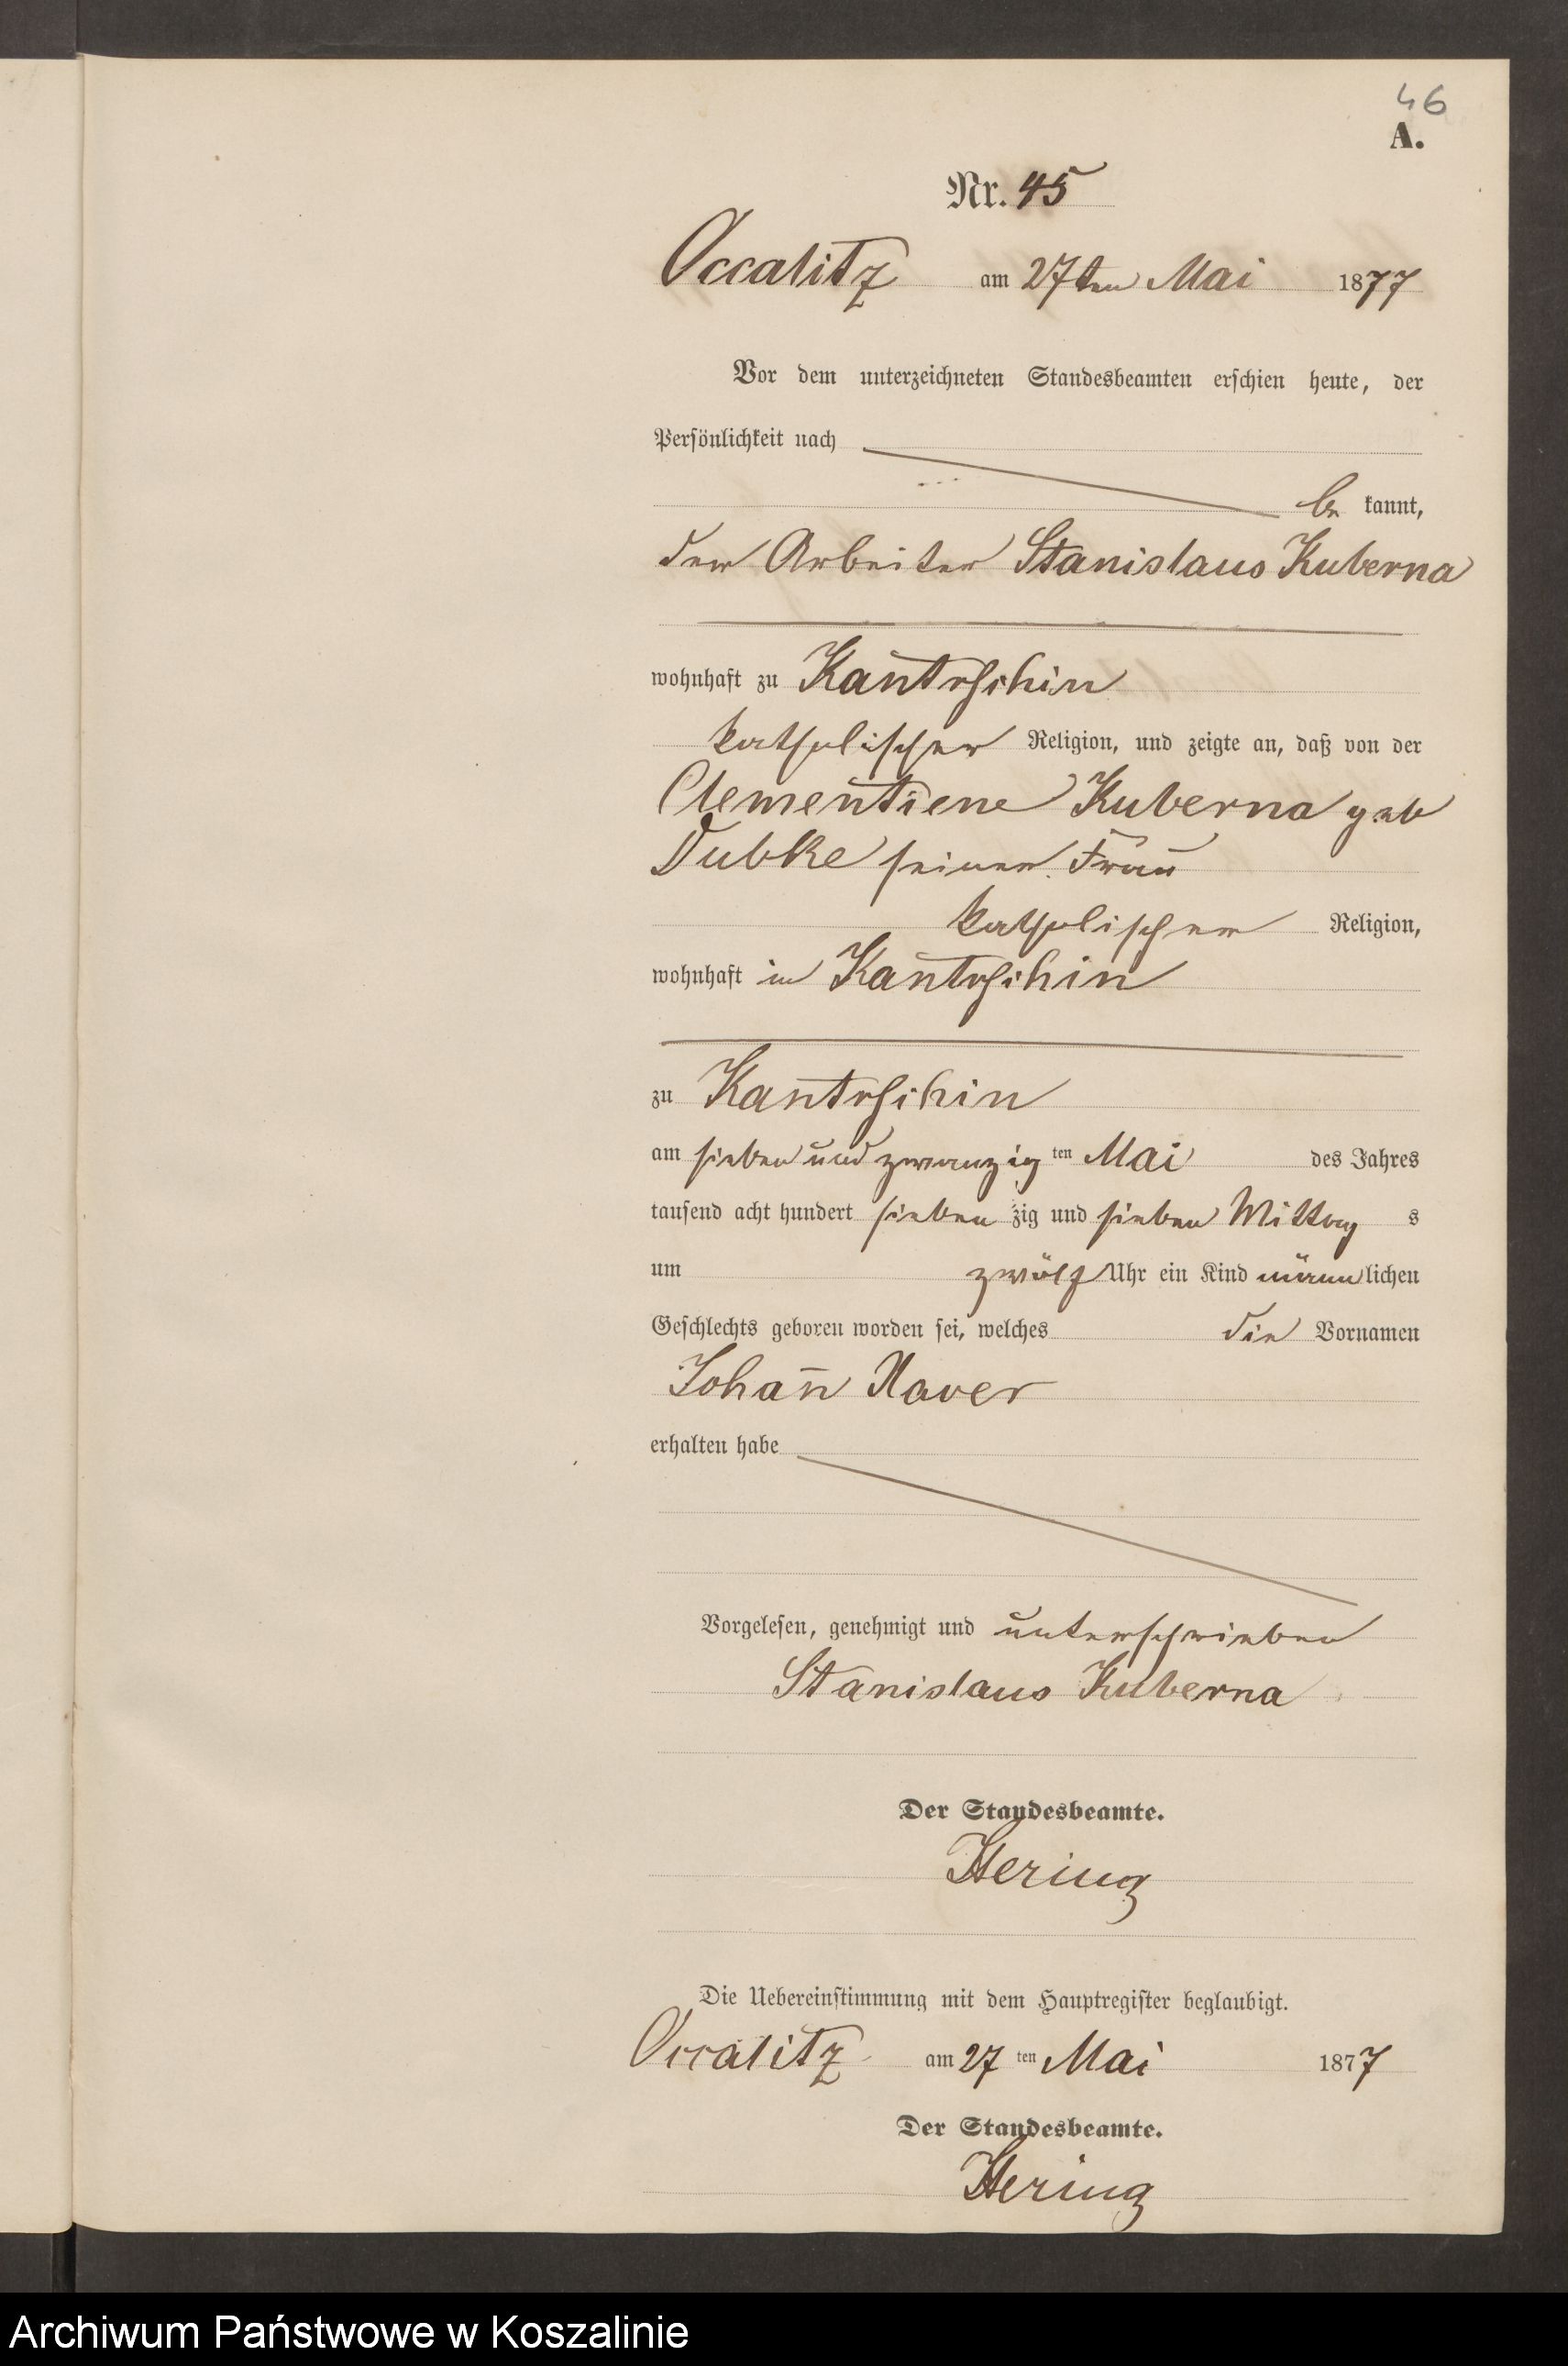 46
A.
Nr. 45
Occalitz am 27ten Mai 1877
Vor dem unterzeichneten Standesbeamten erschien heute, der
Persönlichkeit nach
be kannt,
der Arbeiter Stanislaus Kuberna
wohnhaft zu Kantrschin
katholischer Religion, und zeigte an, daß von der
Clementiene Kuberna geb
Dubke seiner Frau
katholischer Religion,
wohnhaft in Kantrschin
zu Kantrschin
am sieben und zwanzig ten Mai des Jahres
tausend acht hundert sieben zig und sieben Mittag s
um zwölf Uhr ein Kind männ lichen
Geschlechts geboren worden sei, welches die Vornamen
Johann Xaver
erhalten habe
Vorgelesen, genehmigt und unterschrieben
Stanislaus Kuberna
Der Standesbeamte.
Hering
Die Uebereinstimmung mit dem Hauptregister beglaubigt.
Occalitz am 27 ten Mai 1877
Der Standesbeamte.
Hering
Archiwum Państwowe w Koszalinie